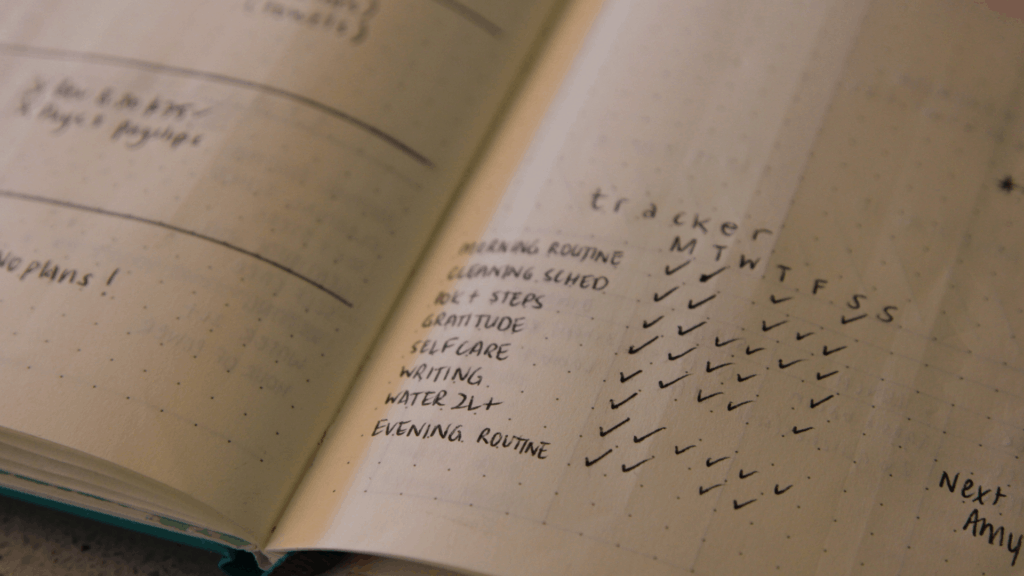 No plans !
tracker
M T W T F S S
MORNING ROUTINE ✓ ✓ ✓ ✓
CLEANING SCHED ✓ ✓ ✓ ✓ ✓
10K+ STEPS
GRATITUDE
SELFCARE
WRITING
WATER 2L+
EVENING ROUTINE
Next
Amy